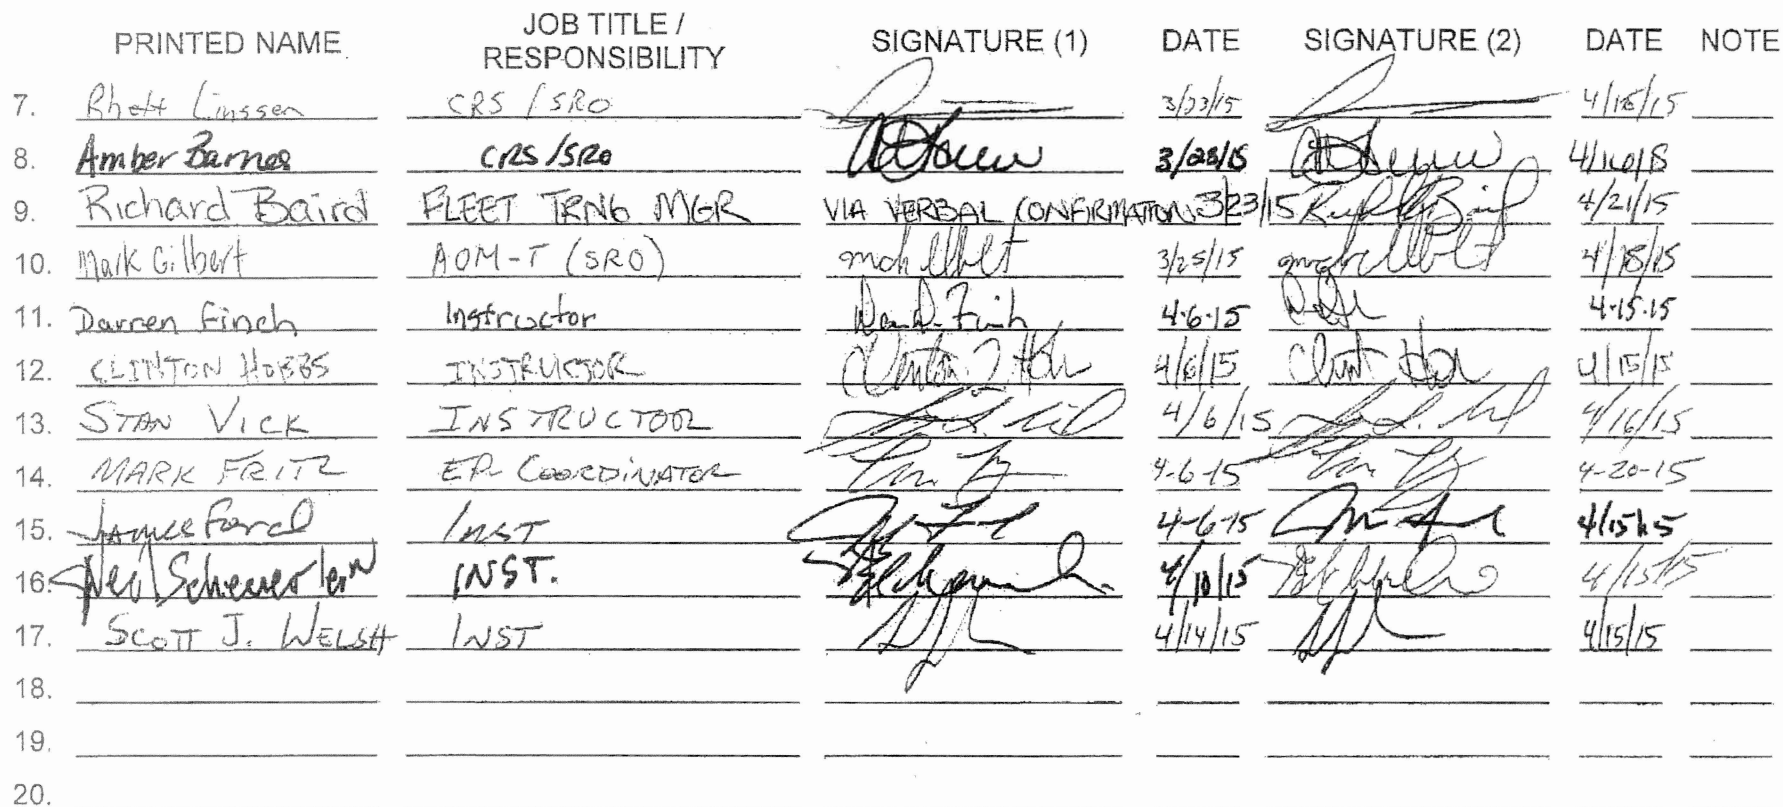 PRINTED NAME JOB TITLE / RESPONSIBILITY SIGNATURE (1) DATE SIGNATURE (2) DATE NOTE
7. Rhett Linssen CRS / SRO 3/23/15 4/15/15
8. Amber Barnes CRS/SRO 3/23/15 4/16/15
9. Richard Baird FLEET TRNG MGR VIA VERBAL CONFIRMATION 3/23/15 4/21/15
10. Mark Gilbert AOM-T (SRO) 3/25/15 4/18/15
11. Darren Finch Instructor 4-6-15 4-15-15
12. CLINTON HOBBS INSTRUCTOR 4/6/15 4/15/15
13. STAN VICK INSTRUCTOR 4/6/15 4/16/15
14. MARK FRITZ EP COORDINATOR 4-6-15 4-20-15
15. James Ford INST 4-6-15 4/15/15
16. Neil Scheuerlein INST. 4/10/15 4/15/15
17. SCOTT J. WELSH INST 4/14/15 4/15/15
18.
19.
20.